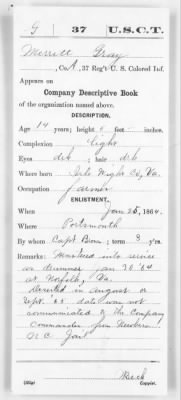 G | 37 | U.S.C.T.
Merritt Gray
, Co. A, 37 Reg't U. S. Colored Inf.
Appears on
Company Descriptive Book
of the organization named above.
DESCRIPTION.
Age 14 years; height 5 feet inches.
Complexion light
Eyes drk ; hair drk
Where born Isle Wight Co, Va.
Occupation farmer
ENLISTMENT.
When Jan 25, 1864.
Where Portsmouth
By whom Capt ; term 3 y'rs.
Remarks: Mustered into service
as Drummer Jan 30 '64
at Norfolk, Va.
Deserted in August or
Sept. '65 date was not
communicated to the Company
Commander from Newbern
N.C. Gen'l
Beck
Copyist.